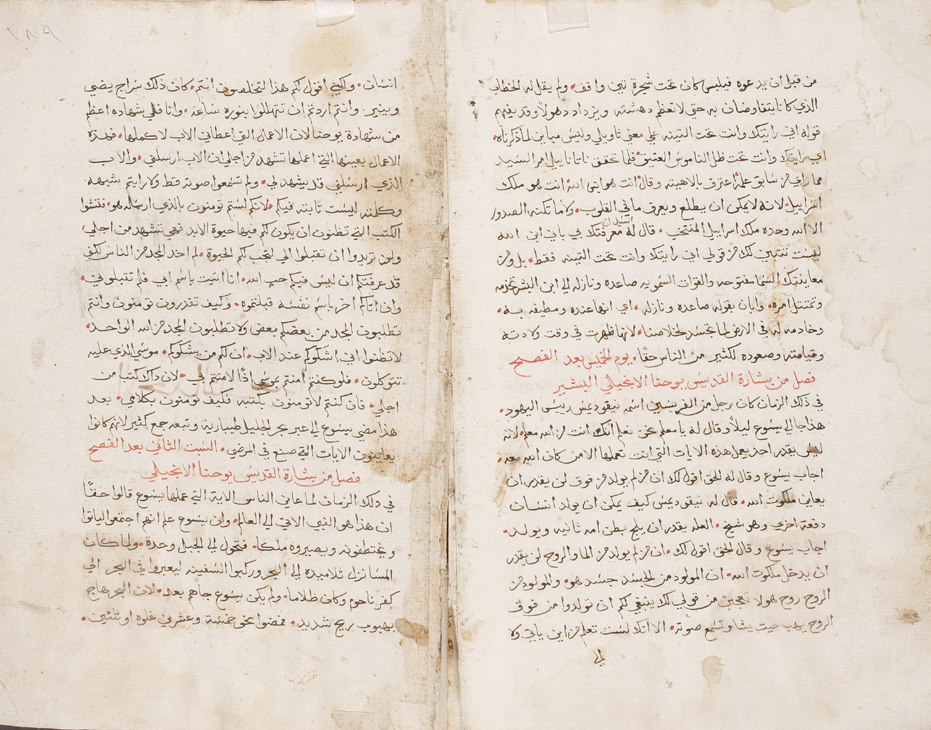 من قبل ان يدعوه فيلبس كان تحت شجرة تين واقف• ولم يقل له الخطاب
الذي كانا يتفاوضان به حتى لا تعظم دهشته ويزداد
قوله اني رايتك وانت تحت التينه على معنى تاويلي وليس مباين لما ذكرناه•
اي رايتك وانت تحت ظل الناموس العتيق• فلما تحقق ناثانائيل امر السيد
مما راى من سابق علمه اعترف بالاهيته وقال انت هو ابن الله انت هو ملك
اسراييل• لانه لا يمكن ان يطلع ويعرف ما في القلوب• ولا ما تكنه الصدور
الا الله وحده ملك اسراييل المنتخب• قال له معرفتك بي باني ابن الله
ليست من قولي لك اني رايتك وانت تحت التينه فقط• بل ومن
معاينتك السما مفتوحه والقوات السمويه صاعده ونازله الى ابن البشر تخدمه
وتمتثل امره• وابان بقوله صاعده ونازله• اي انها عنده ومطيفه به•
وخادمه له في الارض لما تجسد لخلاصنا• لانها ظهرت في وقت ولادته
وقيامته وصعوده لكثير من الناس حقا• يوم الخميس بعد الفصح
فصل من بشارة القديس يوحنا الانجيلي البشير
في ذلك الزمان كان رجل من الفريسيين اسمه نيقوديمس رييس اليهود•
هذا جا الى يسوع ليلا وقال له يا معلم نحن نعلم انك انت من الله معلم• لانه
ليس يقدر احد يعمل هذه الايات التي انت تعملها الا من كان الله معه•
اجاب يسوع وقال له الحق اقول لك ان من لم يولد من فوق لن يقدر ان
يعاين ملكوت الله• قال له نيقوديمس كيف يمكن ان يولد انسان
دفعة اخرى وهو شيخ• العله يقدر ان يلج بطن امه ثانيه ويولد•
اجاب يسوع وقال الحق اقول لك• ان من لم يولد من الما والروح لن يقدر
ان يدخل ملكوت الله• ان المولود من الجسد جسد هو• والمولود من
الروح روح هو• لا تعجبن من قولي لك ينبغي لكم ان تولدوا من فوق
الروح يهب حيث يشا وتسمع صوته• الا انك لست تعلم من اين ياتي ولا
الى
١٨٩
انسان• ولكني اقول لكم هذا لتخلصوا انتم• كان ذلك سراج يضي
وينير• وانتم اردتم ان تتهللوا بنوره ساعه• وانا فلي شهاده اعظم
من شهادة يوحنا لان الاعمال التي اعطاني الاب لاكملها• فهذه
الاعمال بعينها التي اعملها تشهد من اجلي ان الاب ارسلني• والاب
الذي ارسلني قد يشهد لي• ولم تسمعوا صوته قط ولا رايتم شبهه•
وكلمته ليست ثابته فيكم• لانكم لستم تومنون بالذي ارسله هو• فتشوا
الكتب التي تظنون ان يكون لكم فيها حيوة الابد فهي تشهد من اجلي•
ولن تريدوا ان تقبلوا الي لتجب لكم الحيوة• لم اخذ المجد من الناس لكني
قد عرفتكم ان ليس فيكم حب الله• انا اتيت باسم ابي فلم تقبلوني•
وان اتاكم اخر باسم نفسه قبلتموه• وكيف تقدرون تومنون وانتم
تطلبون المجد من بعضكم بعض ولا تطلبون المجد من الله الواحد•
لا تظنوا اني اشكوكم عند الاب• ان لكم من يشكوكم• موسى الذي عليه
تتوكلون• فلو كنتم امنتم بموسى اذا لامنتم بي• لان ذاك كتب من
اجلي• فان كنتم لا تومنون بكتبه فكيف تومنون بكلامي• بعد
هذا مضى يسوع الى عبر بحر الجليل طيباريه وتبعه جمع كثير لانهم كانوا
يعاينون الايات التي صنع في المرضى• السبت الثاني بعد الفصح
فصل من بشارة القديس يوحنا الانجيلي
في ذلك الزمان لما عاين الناس الايه التي عملها يسوع قالوا حقا
ان هذا هو النبي الاتي الى العالم• وان يسوع علم انهم اجتمعوا لياتوا
ويختطفونه ويصيروه ملكا• فتحول الى الجبل وحده• ولما كان
المسا نزل تلاميذه الى البحر وركبوا السفينه ليعبروا في البحر الى
كفر ناحوم وكان ظلاما• ولم يكن يسوع جاهم بعد• لان البحر هاج
بهبوب ريح شديد• فمضوا نحو خمسة وعشرين غلوه او ثلثين•